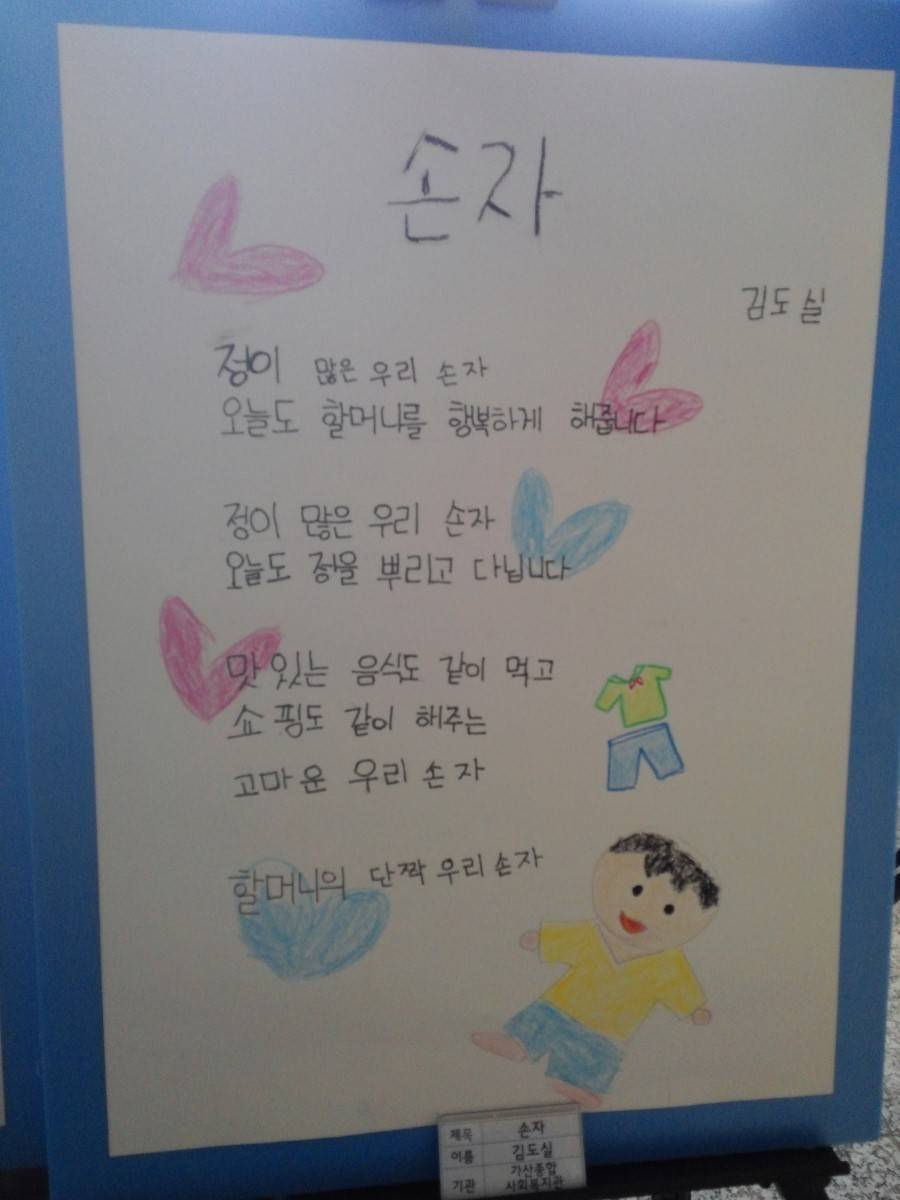 손자
김도실
정이 많은 우리 손자
오늘도 할머니를 행복하게 해줍니다
정이 많은 우리 손자
오늘도 정을 뿌리고 다닙니다
맛있는 음식도 같이 먹고
쇼핑도 같이 해주는
고마운 우리 손자
할머니의 단짝 우리 손자
제목 손자
이름 김도실
기관 가산종합
사회복지관